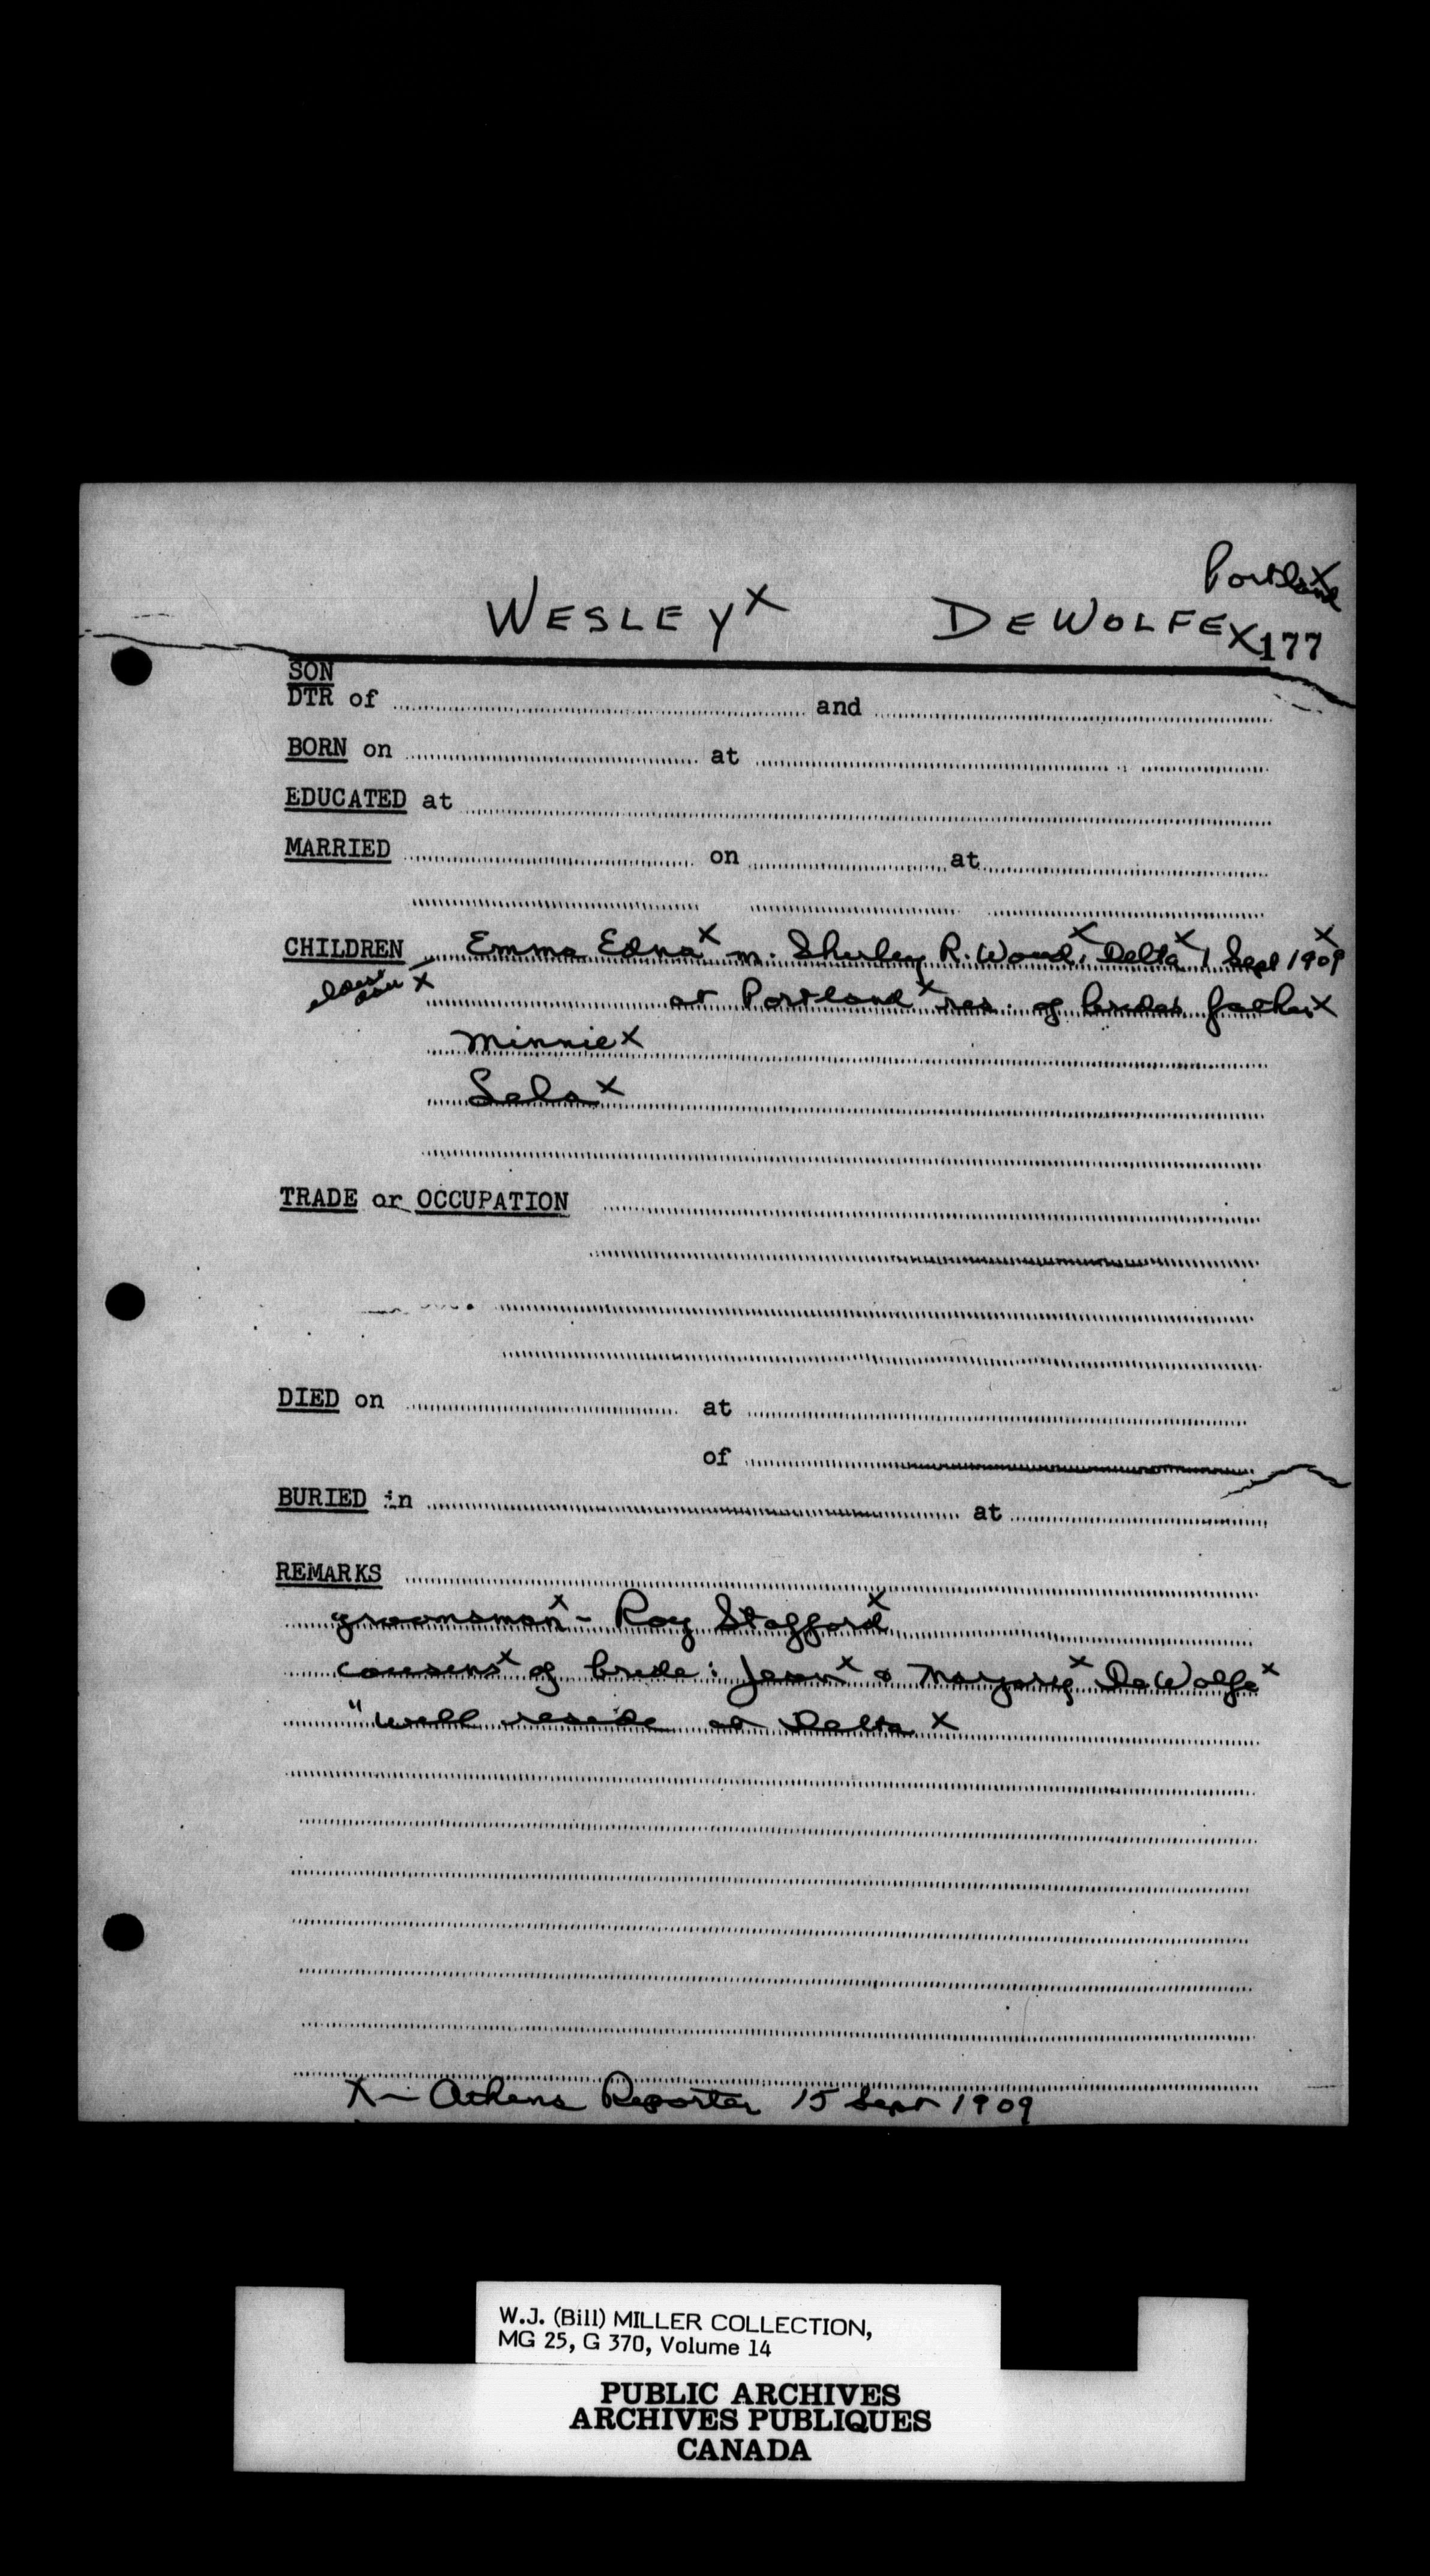 Portland X
WESLEY X DEWOLFE X 177
SON
DTR of and
BORN on at
EDUCATED at
MARRIED on at
CHILDREN Emma Edna X m. Sherley R. Wood, X Delta X 1 Sept 1909 X
X at Portland X res. of brides father X
Minnie X
X
TRADE or OCCUPATION
DIED on at
of
BURIED in at
REMARKS
groomsman X - Roy Stafford X
cousins X of bride: Jean X & Marjory X DeWolfe X
" will reside at Delta X
X - Athens Reporter 15 Sept 1909
W.J. (Bill) MILLER COLLECTION,
MG 25, G 370, Volume 14
PUBLIC ARCHIVES
ARCHIVES PUBLIQUES
CANADA